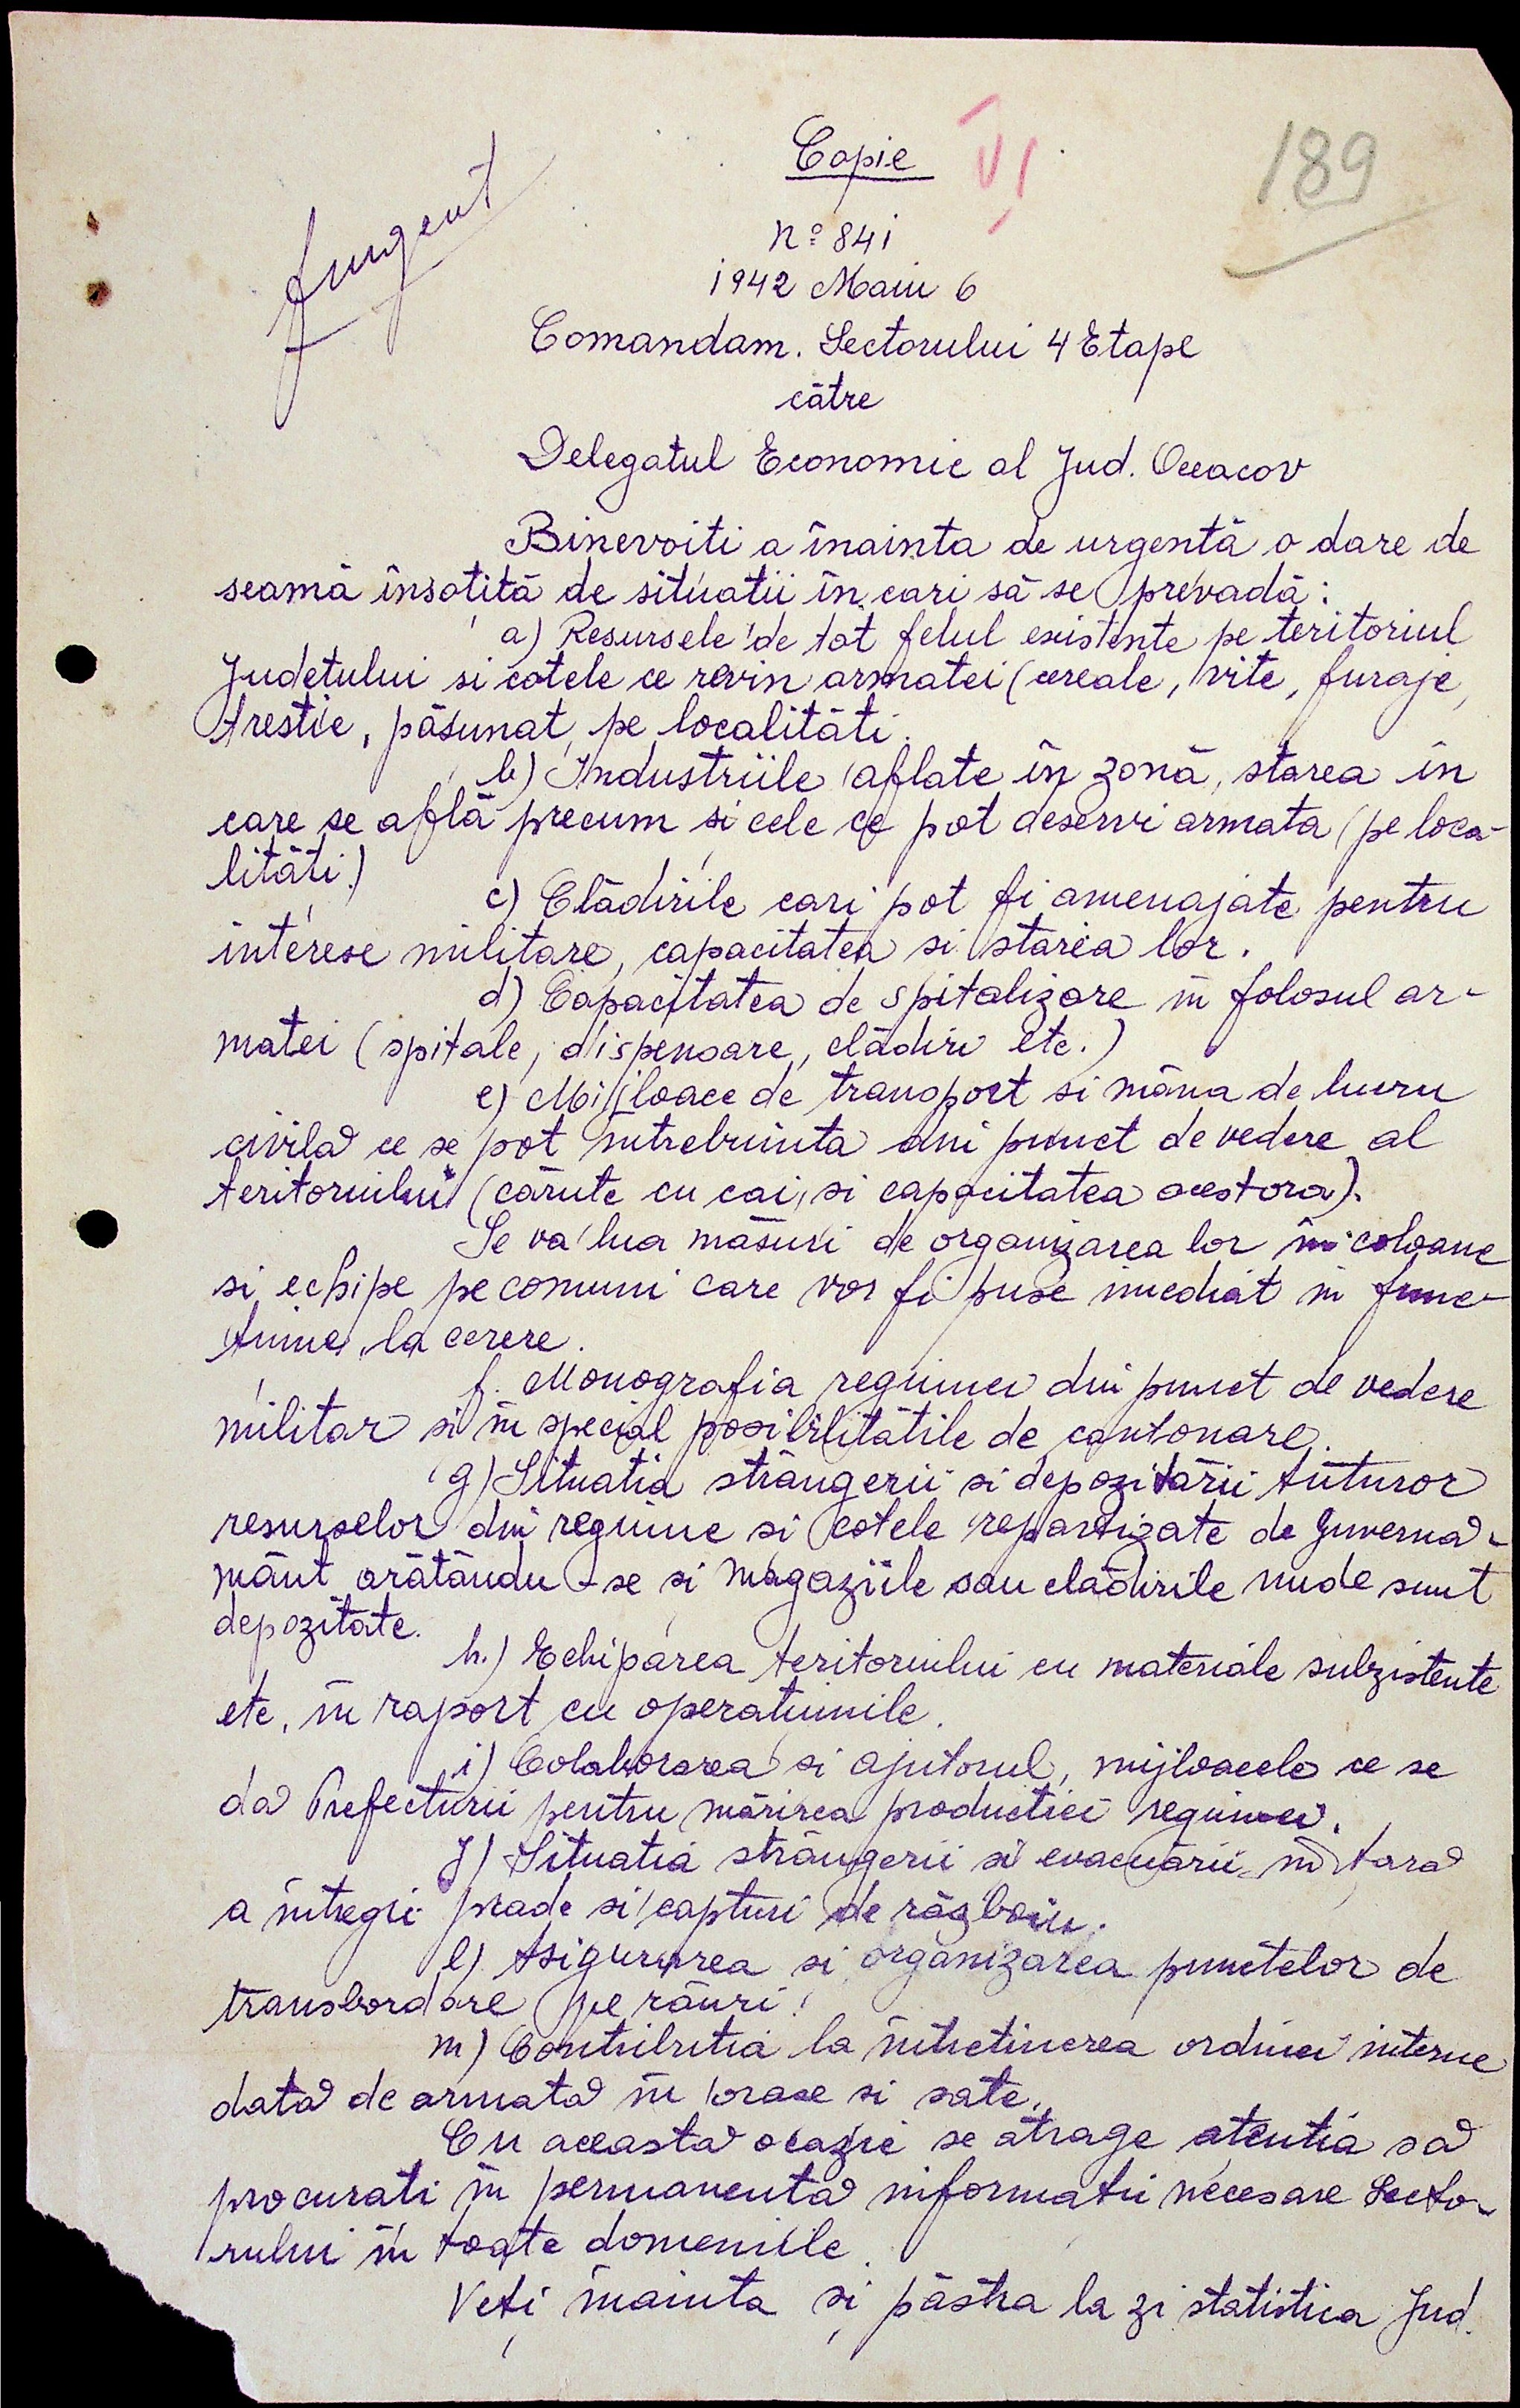 Copie VI
189
f. urgent
No 841
1942 Maiu 6
Comandam. Sectorului 4 Etape
către
Delegatul Economic al Jud. Oceacov
Binevoiți a înainta de urgență o dare de
seamă însoțită de situații în cari să se prevadă:
a) Resursele de tot felul existente pe teritoriul
Județului și cotele ce revin armatei (cereale, vite, furaje,
trestie, pășunat, pe localități.
b) Industriile aflate în zonă, starea în
care se află precum și cele ce pot deservi armata (pe loca-
lități)
c) Clădirile cari pot fi amenajate pentru
interese militare, capacitatea și starea lor.
d) Capacitatea de spitalizare în folosul ar-
matei (spitale, dispensare, clădiri etc.)
e) Mijloace de transport și mâna de lucru
civilă ce se pot întrebuința din punct de vedere al
teritoriului (căruțe cu cai, și capacitatea acestora).
Se va lua măsuri de organizarea lor în coloane
și echipe pe comuni care vor fi puse imediat în func-
țiune, la cerere.
f. Monografia regiunei din punct de vedere
militar și în special posibilitățile de cantonare.
g) Situația strângerii și depozitării tuturor
resurselor din regiune și cotele repartizate de Guvernă-
mânt arătându-se și magaziile sau clădirile unde sunt
depozitate.
h.) Echiparea teritoriului cu materiale subzistente
etc, în raport cu operațiunile.
i) Colaborarea și ajutorul, mijloacele ce se
dă Prefecturii pentru mărirea producției regiunei.
J) Situația strângerii și evacuării în țară
a întregii prade și capturi de războiu.
l) Asigurarea și organizarea punctelor de
transbordare pe râuri.
m) Contribuția la întreținerea ordinei interne
dată de armată în orașe și sate.
Cu această ocazie se atrage atenția să
procurați în permanență informații necesare Secto-
rului în toate domeniile.
Veți înainta și păstra la zi statistica Jud.